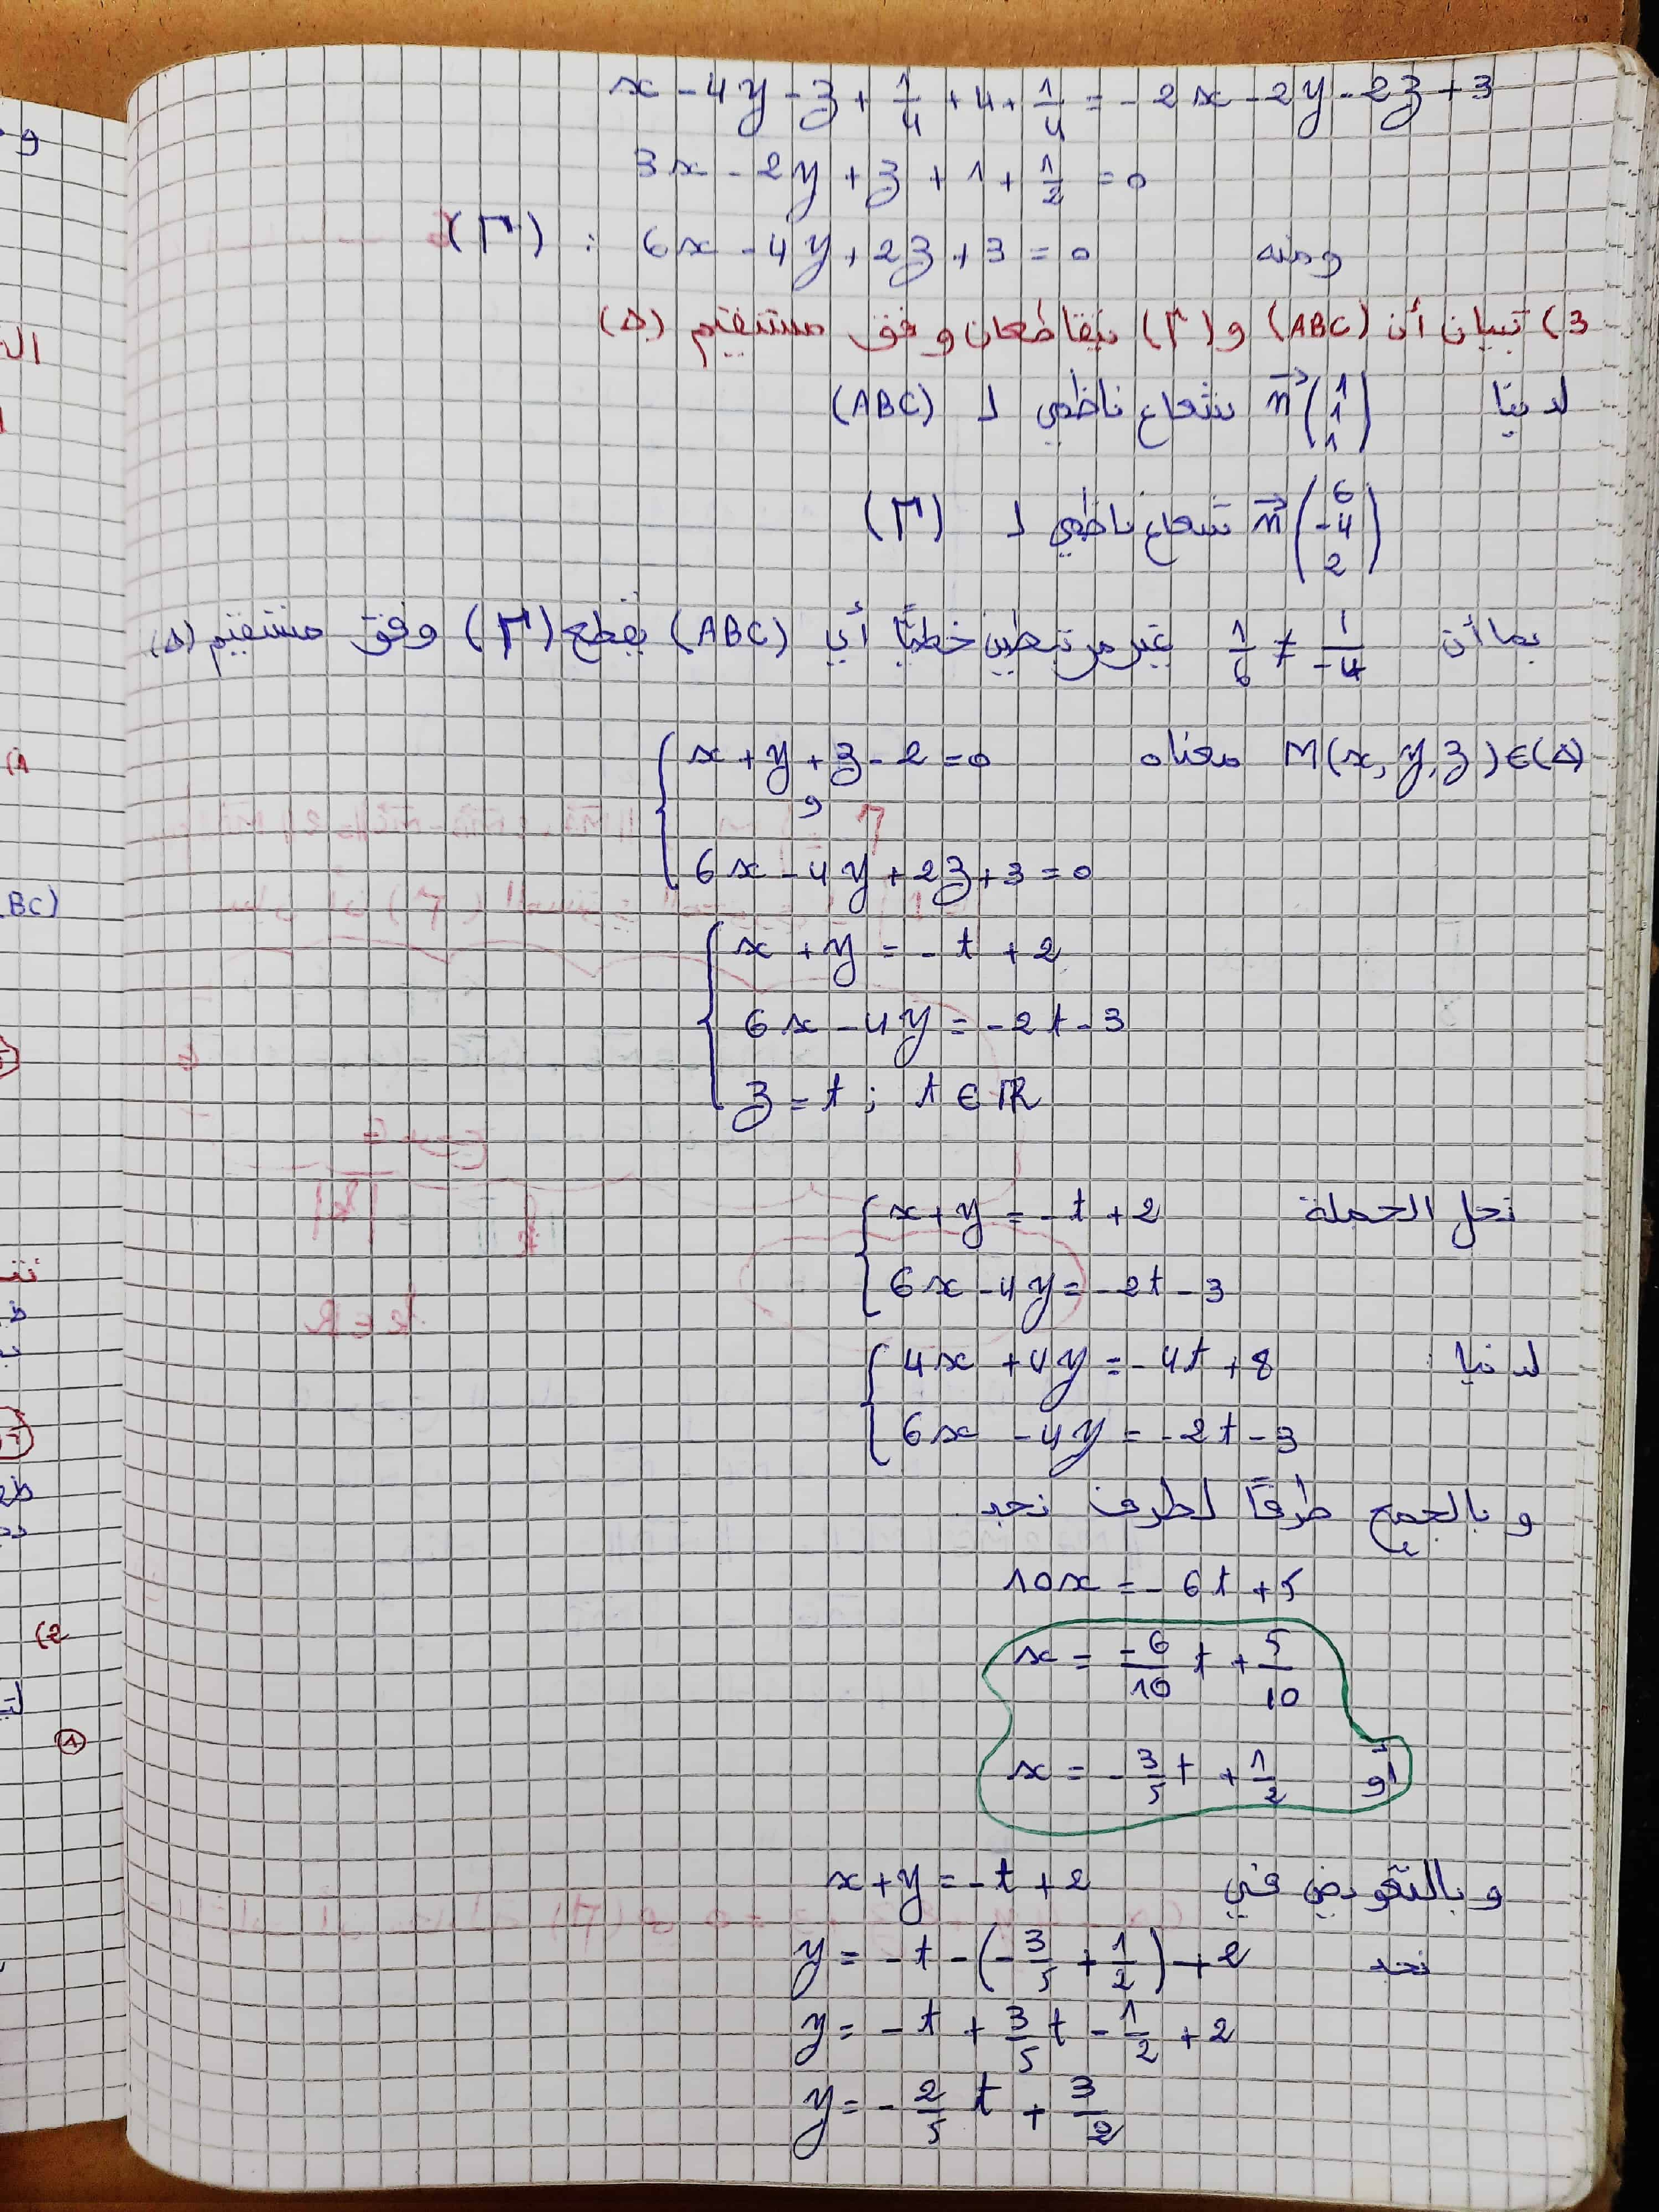 x - 4y - z + 1/4 + 4 + 1/4 = - 2x - 2y - 2z + 3
3x - 2y + z + 1 + 1/2 = 0
ومنه 6x - 4y + 2z + 3 = 0 : (Γ)
3) تبيان أن (ABC) و (Γ) يتقاطعان وفق مستقيم (Δ)
لدينا n⃗ (1 1 1) شعاع ناظمي لـ (ABC)
n⃗ (6 -4 2) شعاع ناظمي لـ (Γ)
بما أن 1/6 ≠ 1/-4 غير مرتبطين خطيًا أي (ABC) يقطع (Γ) وفق مستقيم (Δ)
M(x, y, z) ∈ (Δ) معناه { x + y + z - 2 = 0
و
6x - 4y + 2z + 3 = 0
{ x + y = - t + 2
6x - 4y = -2t - 3
z = t ; t ∈ ℝ
نحل الجملة { x + y = - t + 2
6x - 4y = -2t - 3
لدينا { 4x + 4y = - 4t + 8
6x - 4y = -2t - 3
و بالجمع طرفًا لطرف نجد
10x = - 6t + 5
x = -6/10 t + 5/10
أو x = - 3/5 t + 1/2
و بالتعويض في x + y = - t + 2
نجد y = - t - (- 3/5 + 1/2) + 2
y = - t + 3/5 t - 1/2 + 2
y = - 2/5 t + 3/2
و
ال
(1
BC)
(2
①